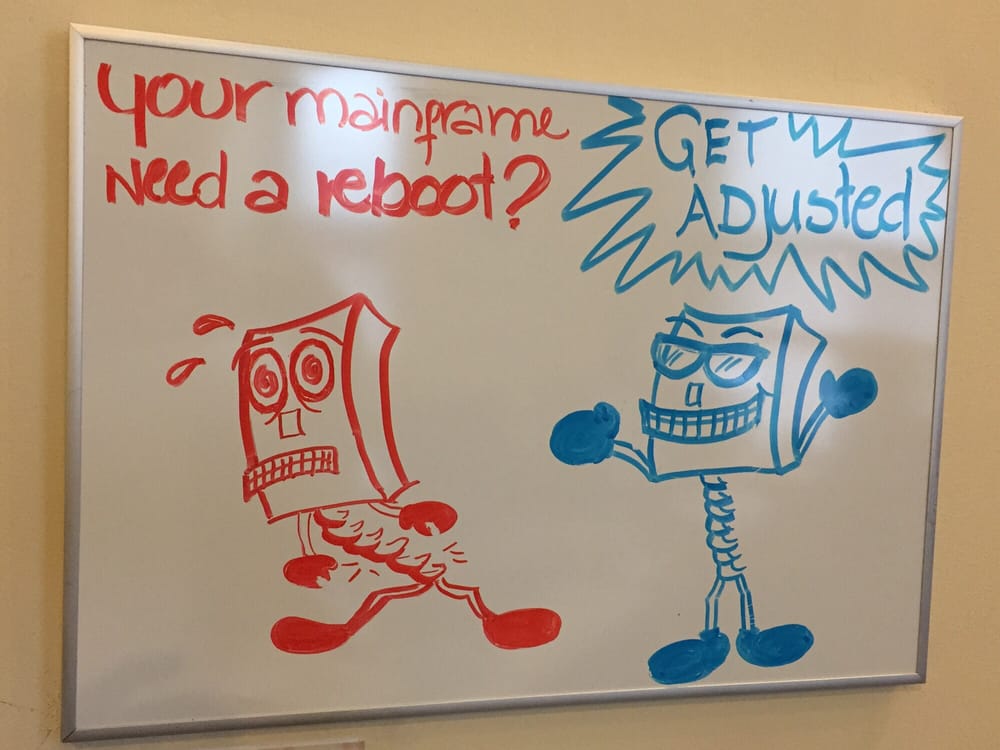 Your mainframe
Need a reboot?
GET
ADjusted